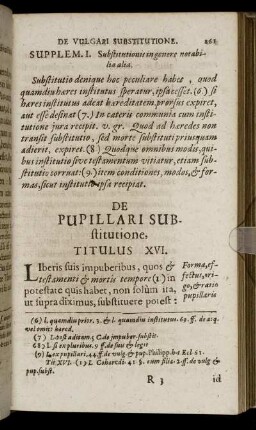 DE VULGARI SUBSTITUTIONE. 261
SUPPLEM. I. Substitutionis in genere notabi-
lia alia.
Substitutio denique hoc peculiare habet, quod
quamdiu hæres institutus speratur, ipsa cesset. (6) si
hæres institutus adeat hæreditatem, prorsus expiret,
aut esse desinat (7.) In cæteris communia cum insti-
tutione jura recipit. v. gr. Quod ad hæredes non
transit substitutio, sed morte substituti priusquam
adierit, expiret. (8) Quodque omnibus modis, qui-
bus institutio sive testamentum vitiatur, etiam sub-
stitutio corruat: (9.) item conditiones, modos, & for-
mas, sicut institutio ipsa recipiat.
DE
PUPILLARI SUB-
stitutione,
TITULUS XVI.
LIberis suis impuberibus, quos &
testamenti & mortis tempore (1) in
potestate quis habet, non solùm ita,
ut supra diximus, substituere potest:
Forma, ef-
fectus, ori-
go, & ratio
pupillaris
(6) l. quamdiu prior. 3. & l. quamdiu institutus. 69. ff. de acq.
vel omit. hæred.
(7) l. post aditum. 5. C. de impuber. substit.
(8) l. si ex pluribus. 9 ff. de suis & legit
(9) l. ex pupillari. 44. ff. de vulg. & pup.
Tit. XVI. (1) l.
pup. subst.
R 3 id